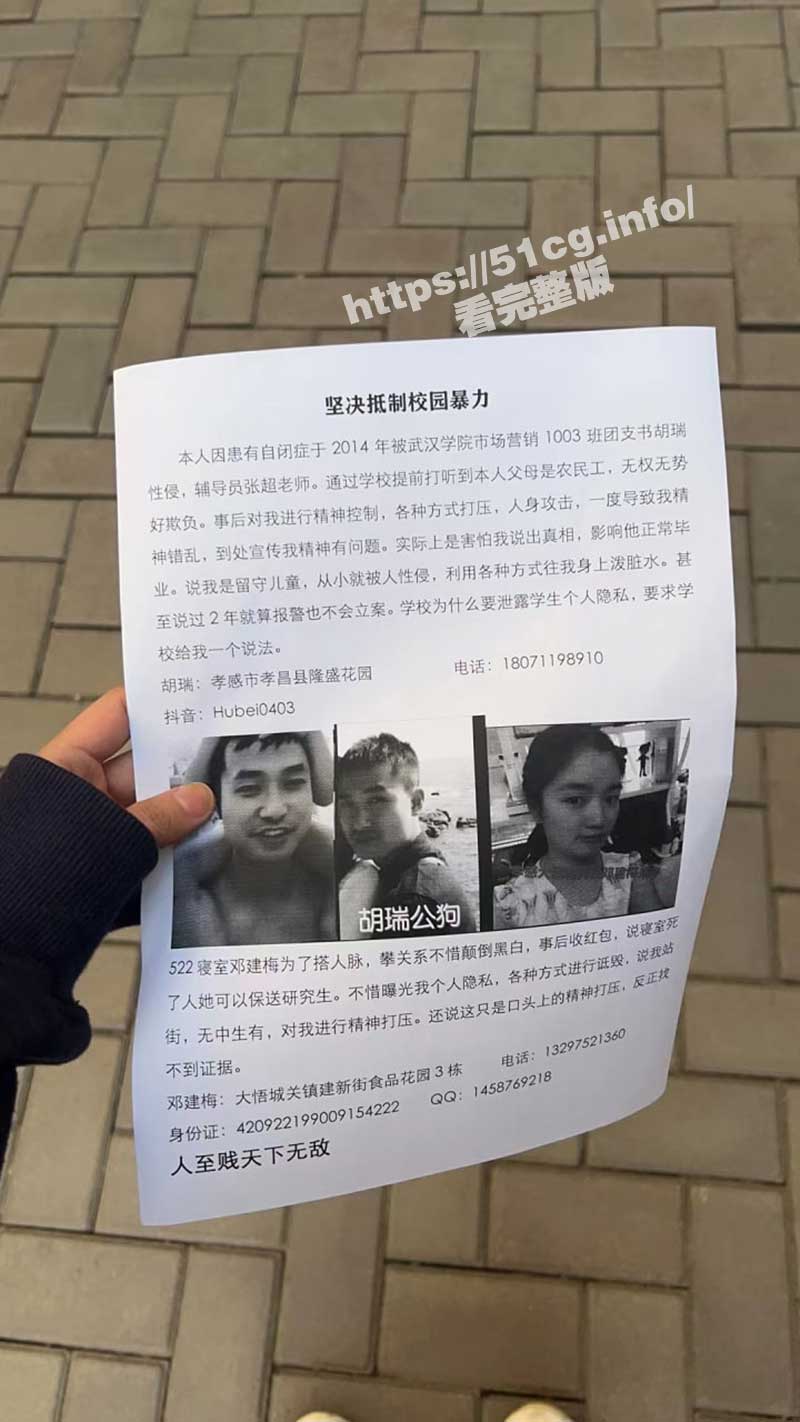 https://51cg.info/
看完整版
坚决抵制校园暴力
本人因患有自闭症于 2014 年被武汉学院市场营销 1003 班团支书胡瑞
性侵，辅导员张超老师。通过学校提前打听到本人父母是农民工，无权无势
好欺负。事后对我进行精神控制，各种方式打压，人身攻击，一度导致我精
神错乱，到处宣传我精神有问题。实际上是害怕我说出真相，影响他正常毕
业。说我是留守儿童，从小就被人性侵，利用各种方式往我身上泼脏水。甚
至说过 2 年就算报警也不会立案。学校为什么要泄露学生个人隐私，要求学
校给我一个说法。
胡瑞：孝感市孝昌县隆盛花园 电话：18071198910
抖音：Hubei0403
胡瑞公狗
522 寝室邓建梅为了搭人脉，攀关系不惜颠倒黑白，事后收红包，说寝室死
了人她可以保送研究生。不惜曝光我个人隐私，各种方式进行诋毁，说我站
街，无中生有，对我进行精神打压。还说这只是口头上的精神打压，反正找
不到证据。
邓建梅：大悟城关镇建新街食品花园 3 栋 电话：13297521360
身份证：420922199009154222 QQ：1458769218
人至贱天下无敌